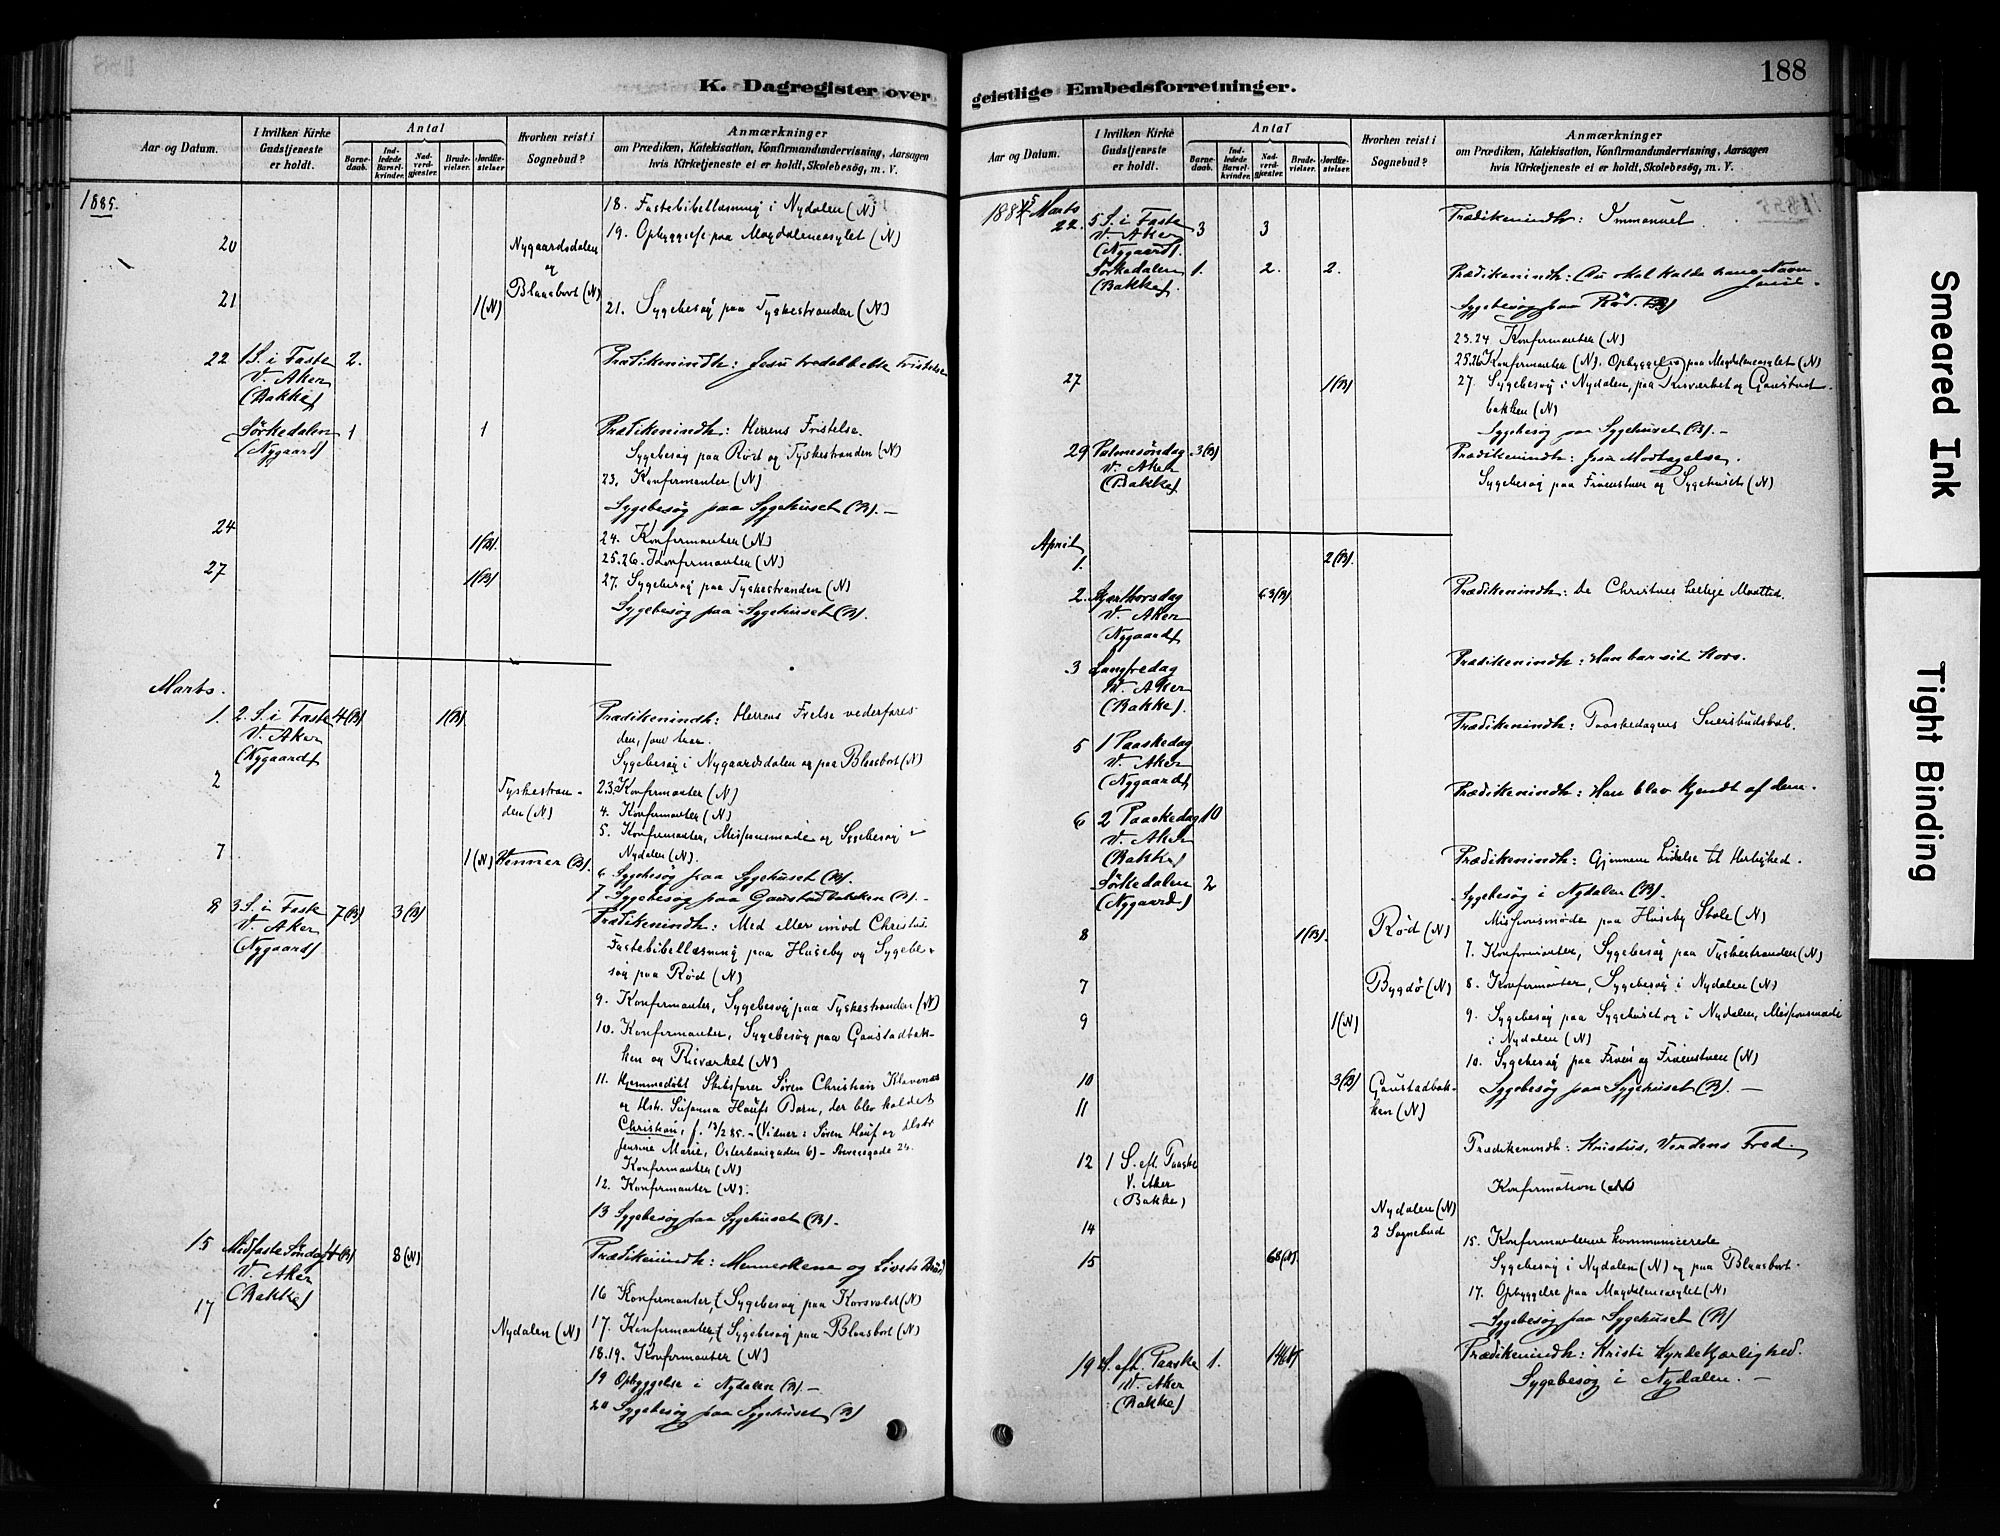 K. Dagregister over
Aar og Datum.
I hvilken Kirke Gudstjeneste er holdt.
Antal
Barnedaab.
Indledede Barselkvinder.
Nadverdgjæster.
Brudevielser.
Jordfæstelser
Hvorhen reist i Sognebud?
Anmærkninger
om Prædiken, Katekisation, Konfirmandundervisning, Aarsagen
hvis Kirketjeneste ei er holdt, Skolebesøg, m. V.
1885.
18. Fastebibellæsning i Nydalen (N)
20
Nygaardsdalen
og
Blaasbort (N)
19. Opbyggelse paa Magdaleneasylet (N)
21
1 (N)
21. Sygebesøg paa Tyskestranden (N)
22 1 S. i Faste 2.
V. Aker
(Bakke)
Prædikenindh: Jesu tredobbelte Fristelse
Sørkedalen 1 1
(Nygaard)
Prædikenindh: Herrens Fristelse.
Sygebesøg paa Rød og Tyskestranden (N)
23. Konfirmanter (N)
Sygebesøg paa Sygehuset (B). –
24 1 (B)
24. Konfirmanter (N)
25.26. Konfirmanter (N)
27 1 (B)
27. Sygebesøg paa Tyskestranden (N)
Sygebesøg paa Sygehuset (B).
Marts.
1. 2. S. i Faste 4 (B) 1 (B)
V. Aker
(Nygaard)
Prædikenindh: Herrens
Sygebesøg i Nygaardsdalen og paa Blaasbort (N)
2
Tyskestranden (N)
2.3. Konfirmanter (N)
4. Konfirmanter (N)
5. Konfirmanter, Missionsmøde og Sygebesøg i
Nydalen (N).
7 1 (N) (B).
6 Sygebesøg paa Sygehuset (B).
7 Sygebesøg paa Gaustadbakken (B). –
8 3 S. i Faste 7 (B) 3 (B)
V. Aker
(Nygaard)
Prædikenindh: Med eller imod Christus.
Fastebibellæsning paa Huseby og Sygebe-
søg paa Rød (N)
9. Konfirmanter, Sygebesøg paa Tyskestranden (N)
10. Konfirmanter, Sygebesøg paa Gaustadbak-
ken og Risværket (N)
11. Hjemmedøbt Skibsfører Søren Christian Klavenæs
og Hst. Susanna Houfs Barn, der blev kaldet
Christian, f. 13/2 85. – (Vidner: Søren Houf og Hstr
Marie,
Konfirmanter (N)
12. Konfirmanter (N).
13 Sygebesøg paa Sygehuset (B).
15 Midfaste Søndag 4 (B) 8 (N)
V. Aker
(Bakke)
Prædikenindh: Menneskene og Livets Brød
16 Konfirmanter, Sygebesøg paa Korsvold (N)
17
Nydalen (N)
17. Konfirmanter, Sygebesøg paa Blaasbort (N)
18.19. Konfirmanter (N)
19 Opbyggelse i Nydalen (B). –
20 Sygebesøg paa Sygehuset (B)
geistlige Embedsforretninger.
188
Aar og Datum.
I hvilken Kirke Gudstjeneste er holdt.
Antal
Barnedaab.
Indledede Barselkvinder.
Nadverdgjæster.
Brudevielser.
Jordfæstelser
Hvorhen reist i Sognebud?
Anmærkninger
om Prædiken, Katekisation, Konfirmandundervisning, Aarsagen
hvis Kirketjeneste ei er holdt, Skolebesøg, m. V.
1885 Marts
22. 5 S. i Faste 3 3
V. Aker
(Nygaard).
Prædikenindh: Immanuel.
Sørkedalen 1. 2. 2.
(Bakke).
Prædikenindh: Du skal kalde hans Navn
Sygebesøg paa Rød. (B)
23.24 Konfirmanter (N)
25.26 Konfirmanter (N). Opbyggelse paa Magdaleneasylet (N)
27 1 (B)
27. Sygebesøg i Nydalen, paa Risværket og Gaustad-
bakken (N)
Sygebesøg paa Sygehuset (B). –
29 Palmesøndag 3 (B)
V. Aker
(Bakke)
Prædikenindh: Jesu Modtagelse.
Sygebesøg paa Frøenstuen og Sygehuset (N)
April
1. 2 (B).
2. Skjærthorsdag 63 (B)
V. Aker
(Nygaard)
Prædikenindh: De Christnes hellige Maaltid.
3 Langfredag
V. Aker
(Bakke).
Prædikenindh: Han bar sit Kors.
5 1 Paaskedag
V. Aker
(Nygaard)
Prædikenindh: Paaskedagens Seiersbudskab.
6 2 Paaskedag 10
V. Aker
(Bakke)
Prædikenindh: Han blev kjendt af dem.
Sørkedalen 2
(Nygaard)
Prædikenindh: Gjennem Lidelse til Herlighed.
Sygebesøg i Nydalen (B).
Missionsmøde paa Huseby Skole (N)
8 1 (B).
Rød (N)
7. Konfirmanter, Sygebesøg paa Tyskestranden (N)
7
Bygdø (N)
8. Konfirmanter, Sygebesøg i Nydalen (N)
9 1 (N)
9. Sygebesøg paa Sygehuset og i Nydalen, Missionsmøde
i Nydalen (N)
10. Sygebesøg paa Frøen og Frøenstuen (N)
10 3 (B)
Gaustadbak-
ken (N)
Sygebesøg paa Sygehuset (B). –
11
12 1 S. eft. Paaske
V. Aker
(Bakke)
Prædikenindh: Kristus, Verdens Fred.
Konfirmation (N)
14
Nydalen (N)
2 Sognebud
15 68 (N).
15. Konfirmanterne kommunicerede
Sygebesøg i Nydalen (N) og paa Blaasbort.
17. Opbyggelse paa Magdaleneasylet (N)
Sygebesøg paa Sygehuset (B)
19 2 S. eft. Paaske 1.
V. Aker
(Bakke)
Prædikenindh: Kristi Hyrdekjærlighed.
Sygebesøg i Nydalen. –
Smeared Ink
Tight Binding